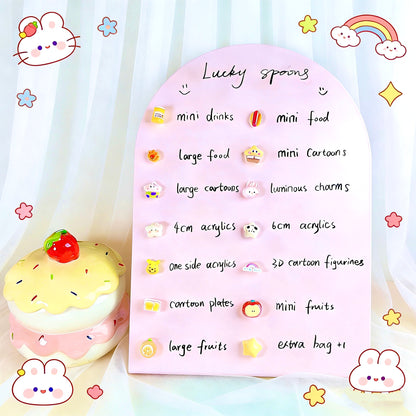 Lucky spoons
mini drinks mini food
large food mini Cartoons
large cartoons luminous charms
4cm acrylics 6cm acrylics
one side acrylics 3D cartoon figurines
cartoon plates mini fruits
large fruits extra bag +1